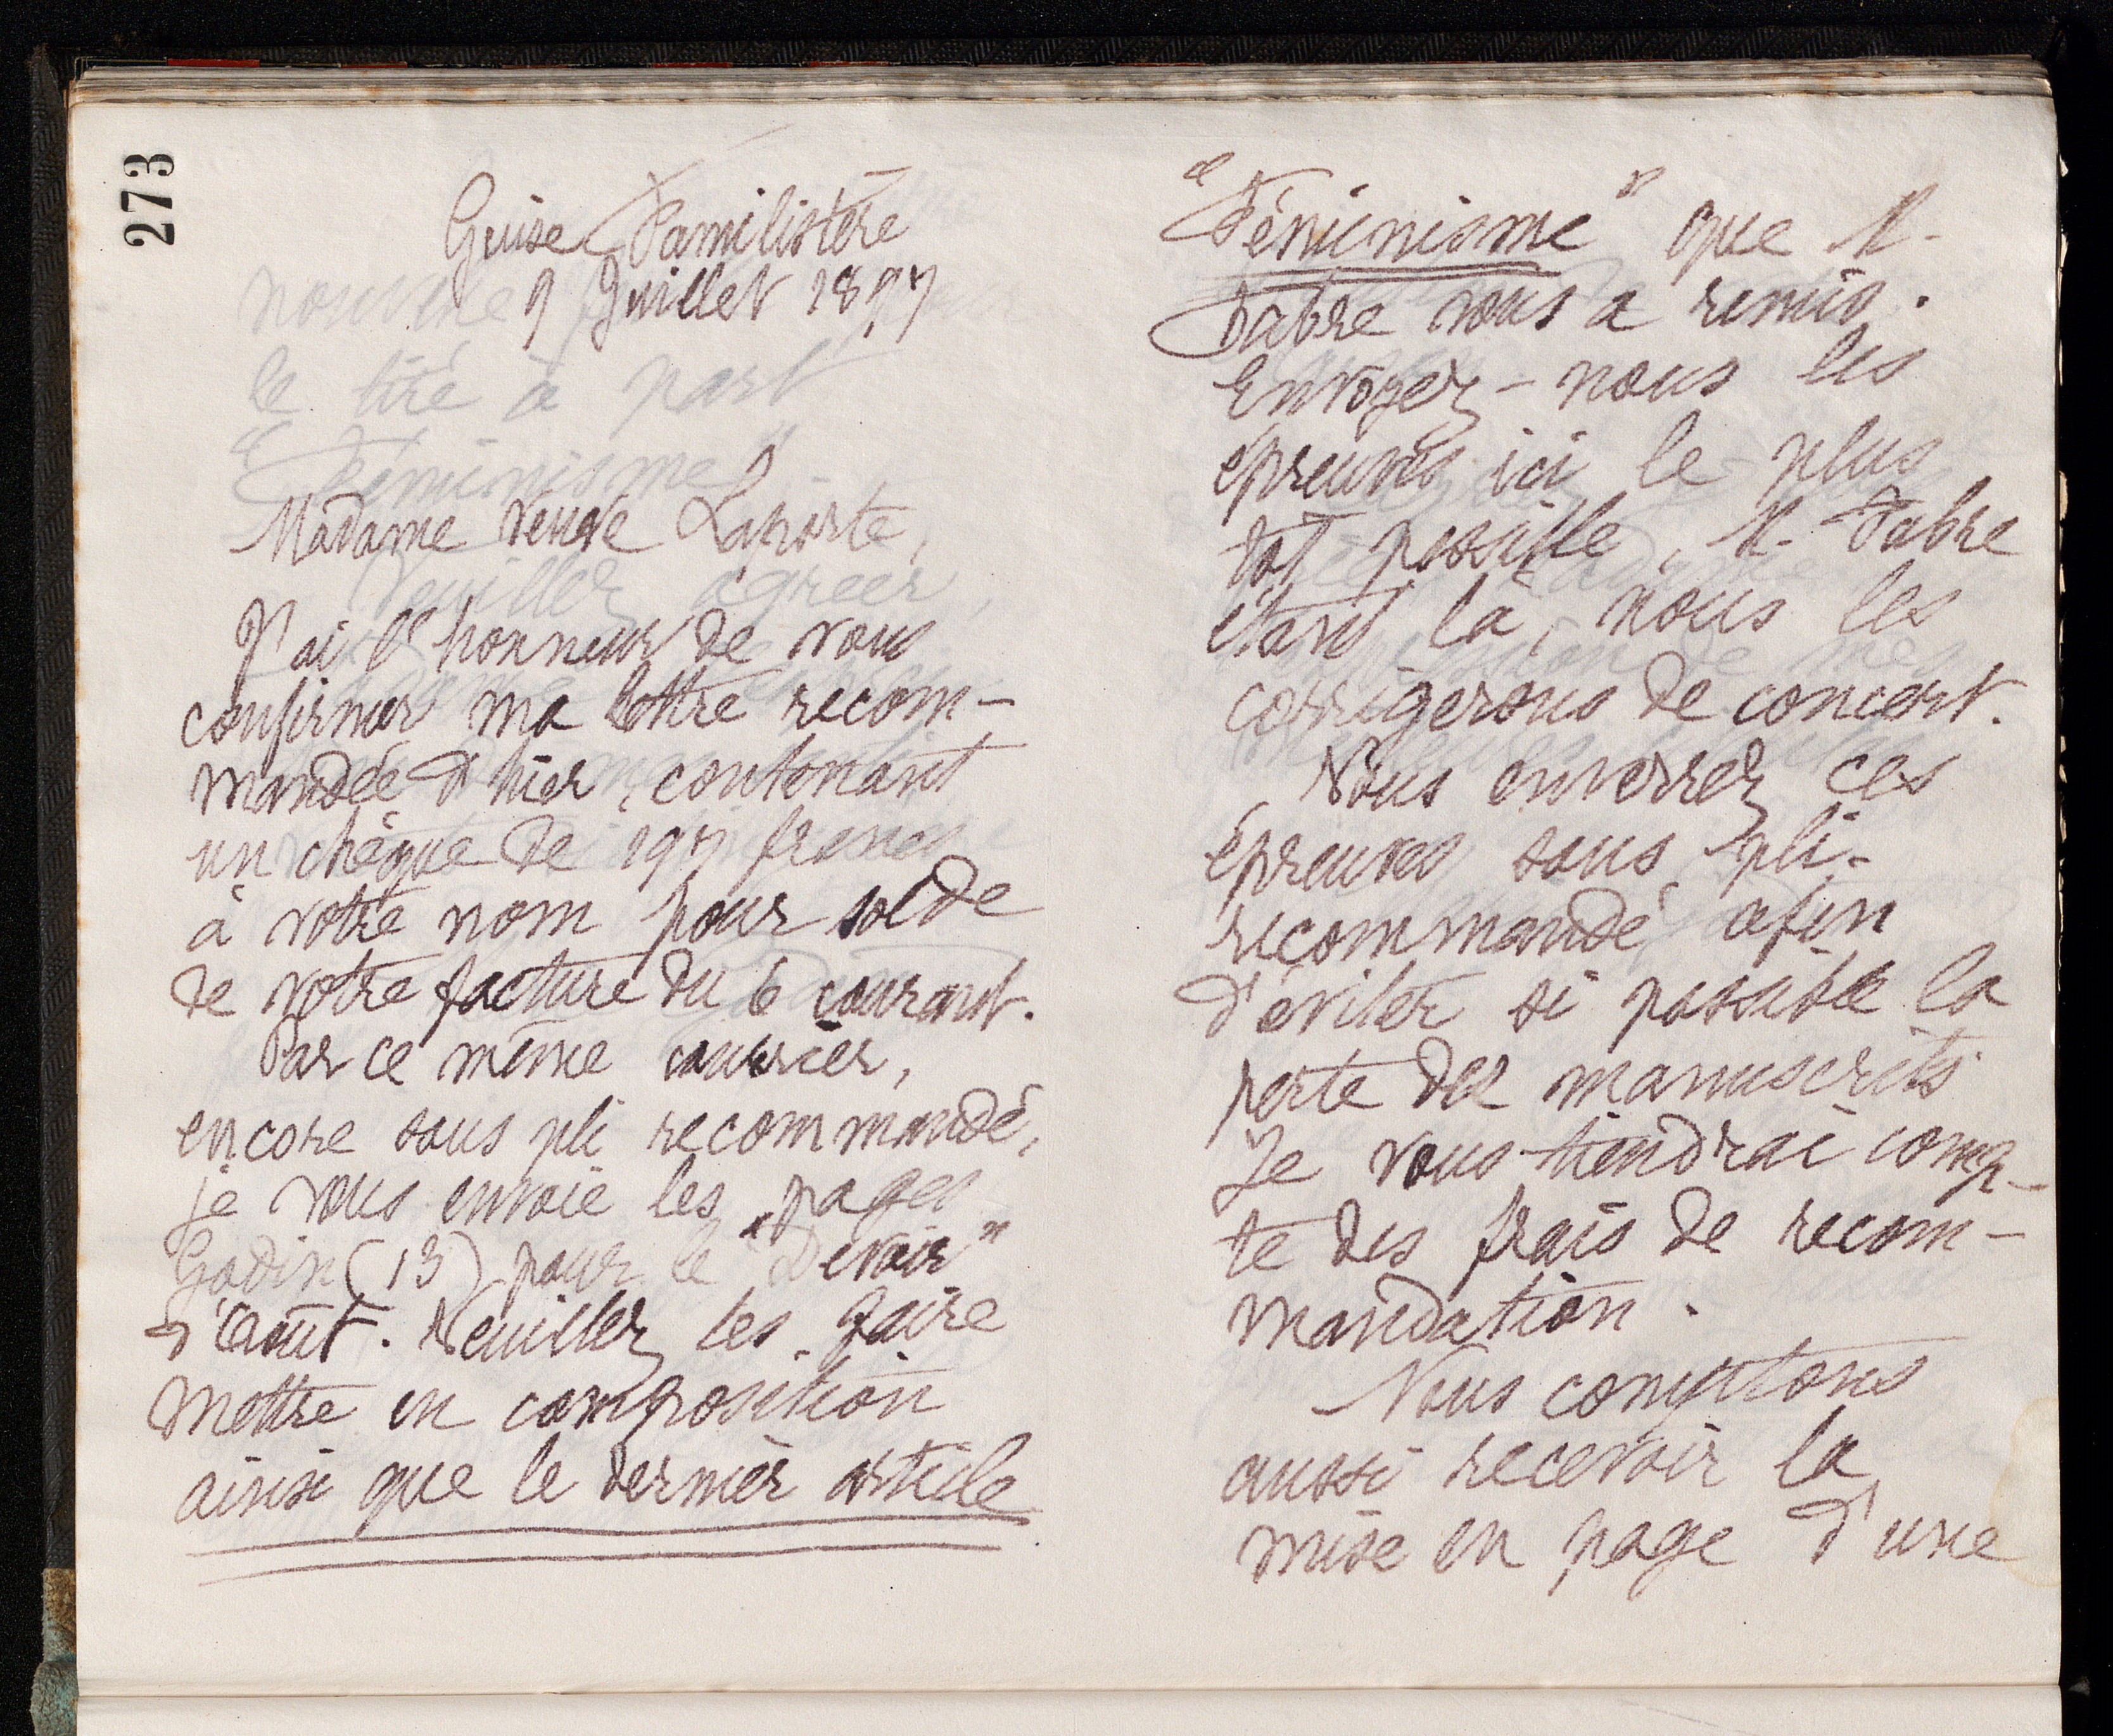 273
Guise Familistère
9 Juillet 1897
Madame veuve Laporte,
J'ai l'honneur de vous
confirmer ma lettre recom-
mandée d'hier, contenant
un chèque de 197 francs
à votre nom pour solde
de votre facture du 6 courant.
Par ce même courrier,
encore sous pli recommandé,
je vous envoie les pages
Godin (13) pour le "Devoir"
d'août. Veuillez les faire
mettre en composition
ainsi que le dernier article
"Féminisme" que M.
Fabre vous a remis.
Envoyez-nous les
épreuves ici le plus
tôt possible, M. Fabre
étant là, nous les
corrigerons de concert.
Vous enverrez ces
épreuves sous pli-
recommandé afin
d'éviter si possible la
perte des manuscrits
Je vous tiendrai comp-
te des frais de recom-
mandation.
Nous comptons
aussi recevoir la
mise en page d'une